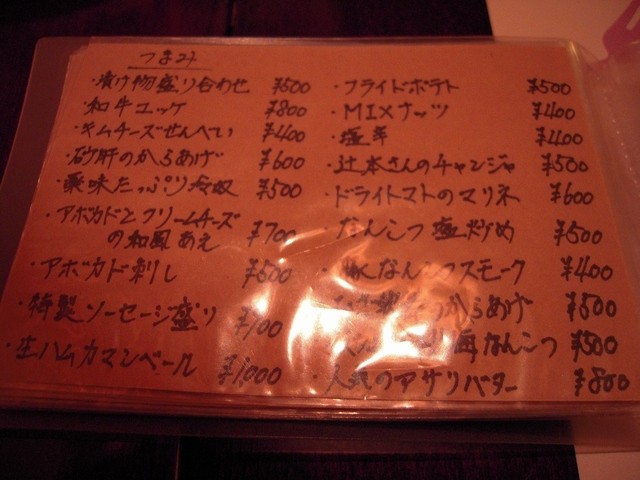 つまみ
・漬け物盛り合わせ ¥500
・和牛ユッケ ¥800
・キムチーズせんべい ¥400
・砂肝のからあげ ¥600
・薬味たっぷり冷奴 ¥500
・アボカドとクリームチーズ
の和風あえ ¥700
・アボカド刺し
・特製ソーセージ盛り
・生ハムカマンベール ¥1000
・フライドポテト ¥500
・MIXナッツ ¥400
・塩辛 ¥400
・辻本さんのチャンジャ ¥500
・ドライトマトのマリネ ¥600
・なんこつ塩炒め ¥500
なんこつスモーク ¥400
からあげ ¥500
なんこつ ¥500
・人気のアサリバター ¥800